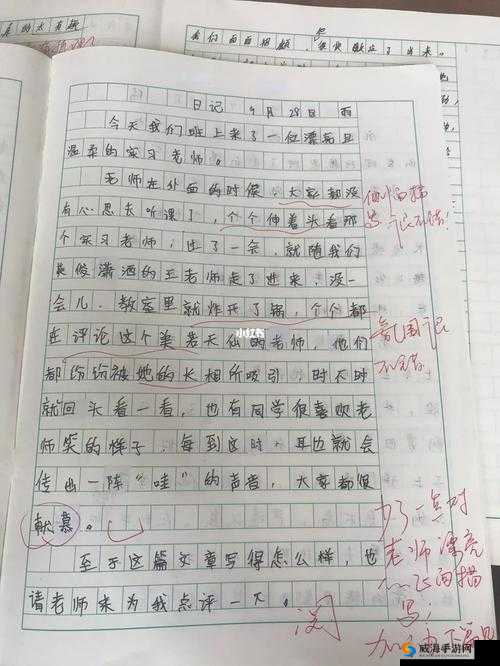 日记 9月28日 雨
今天我们班上来了一位漂亮且
温柔的实习老师。
老师在外面的时候,大家都没
有心思去听课了,个个伸着头看那
个实习老师,过了一会,就随我们
英俊潇洒的王老师走了进来,没一
会儿,教室里就炸开了锅,个个都
在评论这个美若天仙的老师,他们
都纷纷被她的长相所吸引,时不时
就回头看一看,也有同学很喜欢老
师笑的样子,每到这时,耳边就会
传出一阵“哇”的声音,大家都很
献慕。
至于这篇文章写得怎么样,也
请老师来为我点评一下。
侧面描
写很不错!
氛围很
不错。
少了一点对
老师漂亮
正面描
写;
加油
阅
小红书
威海手游网